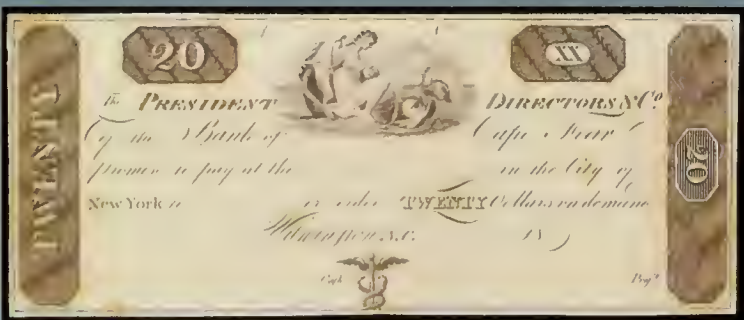 20
XX
TWENTY
The PRESIDENT DIRECTORS & Co.
Of the Bank of Cape Fear
promise to pay at the in the City of
New York to or order TWENTY Dollars on demand
Wilmington N.C. 18
Cash Pres.t
20